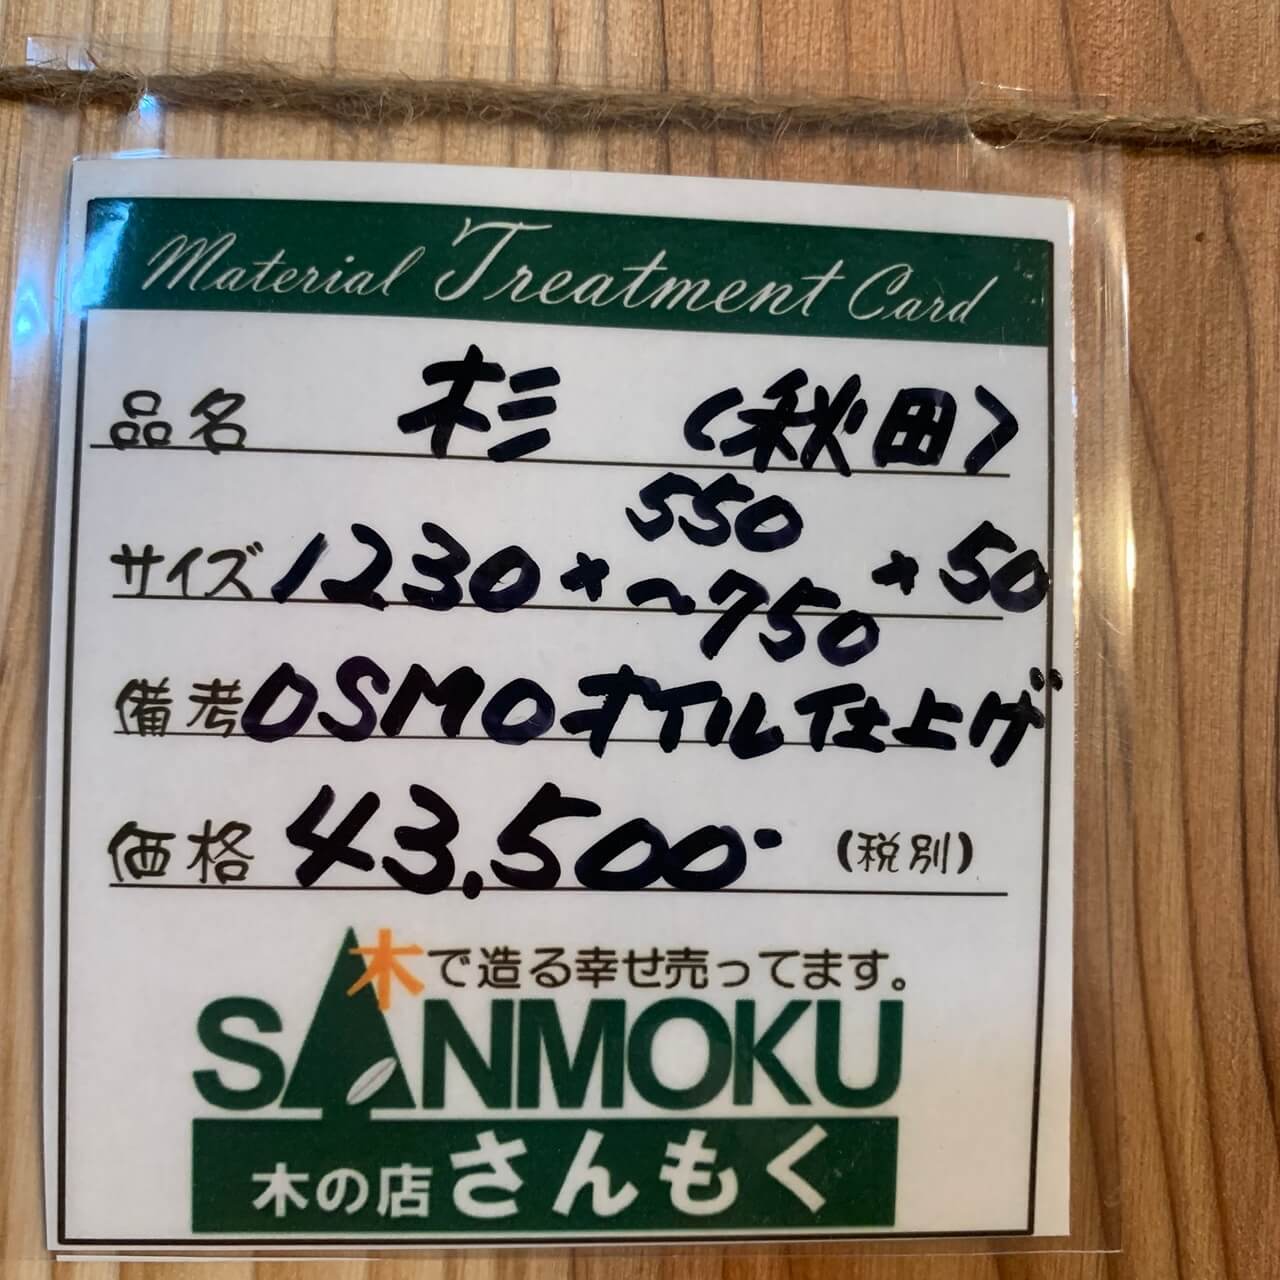 Material Treatment Card
品名 杉 (秋田)
サイズ 1230 × 550~750 × 50
備考 OSMOオイル仕上げ
価格 43,500- (税別)
木で造る幸せ売ってます。
SANMOKU
木の店 さんもく